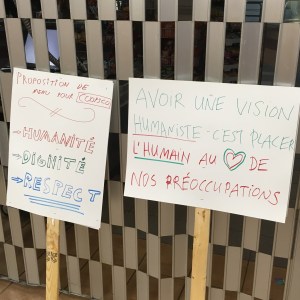 PROPOSITION DE
MENU POUR SODEXO
→ HUMANITÉ
→ DIGNITÉ
→ RESPECT
AVOIR UNE VISION
HUMANISTE C'EST PLACER
L'HUMAIN AU ♡ DE
NOS PRÉOCCUPATIONS